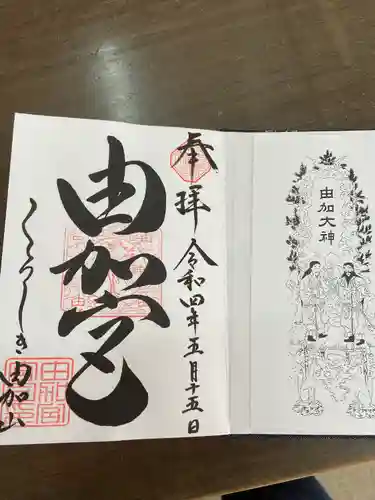 奉拝
令和四年五月十五日
由加宮
くらしき
由加山
由加大神